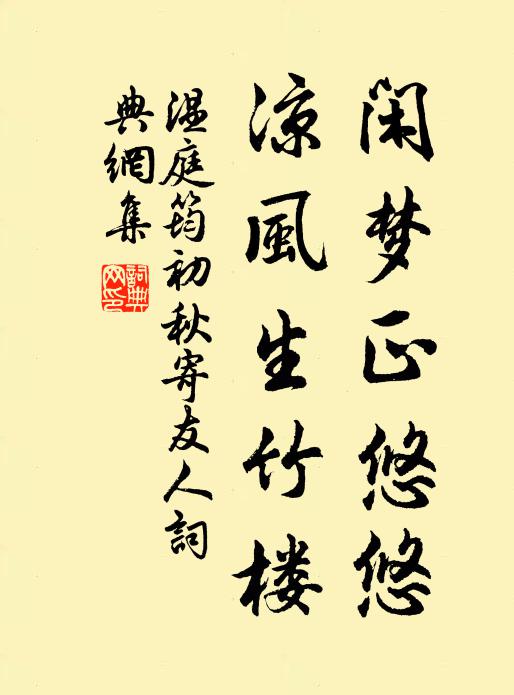 闲梦正悠悠
凉風生竹楼
温庭筠初秋寄友人詞
典網集
詞典
网印